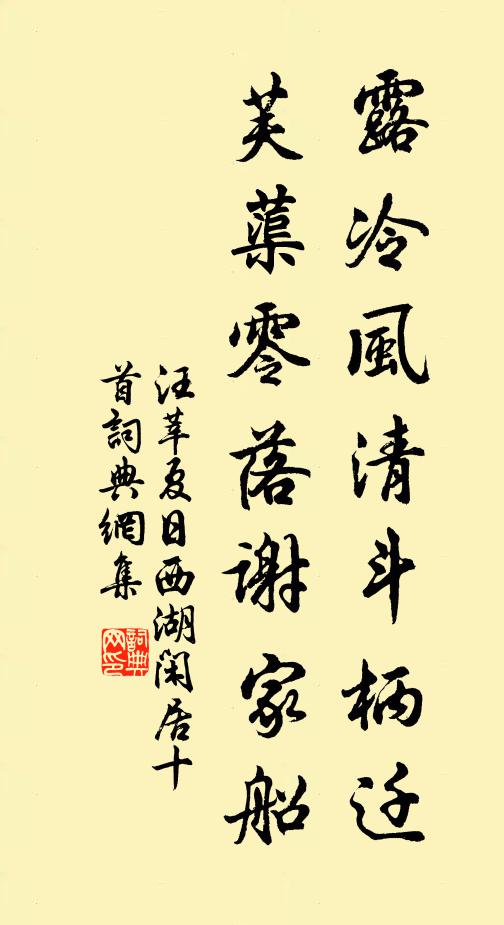 露冷風清斗柄迁
芙蕖零落謝家船
汪莘夏日西湖閑居十
首詞典網集
詞典
网印